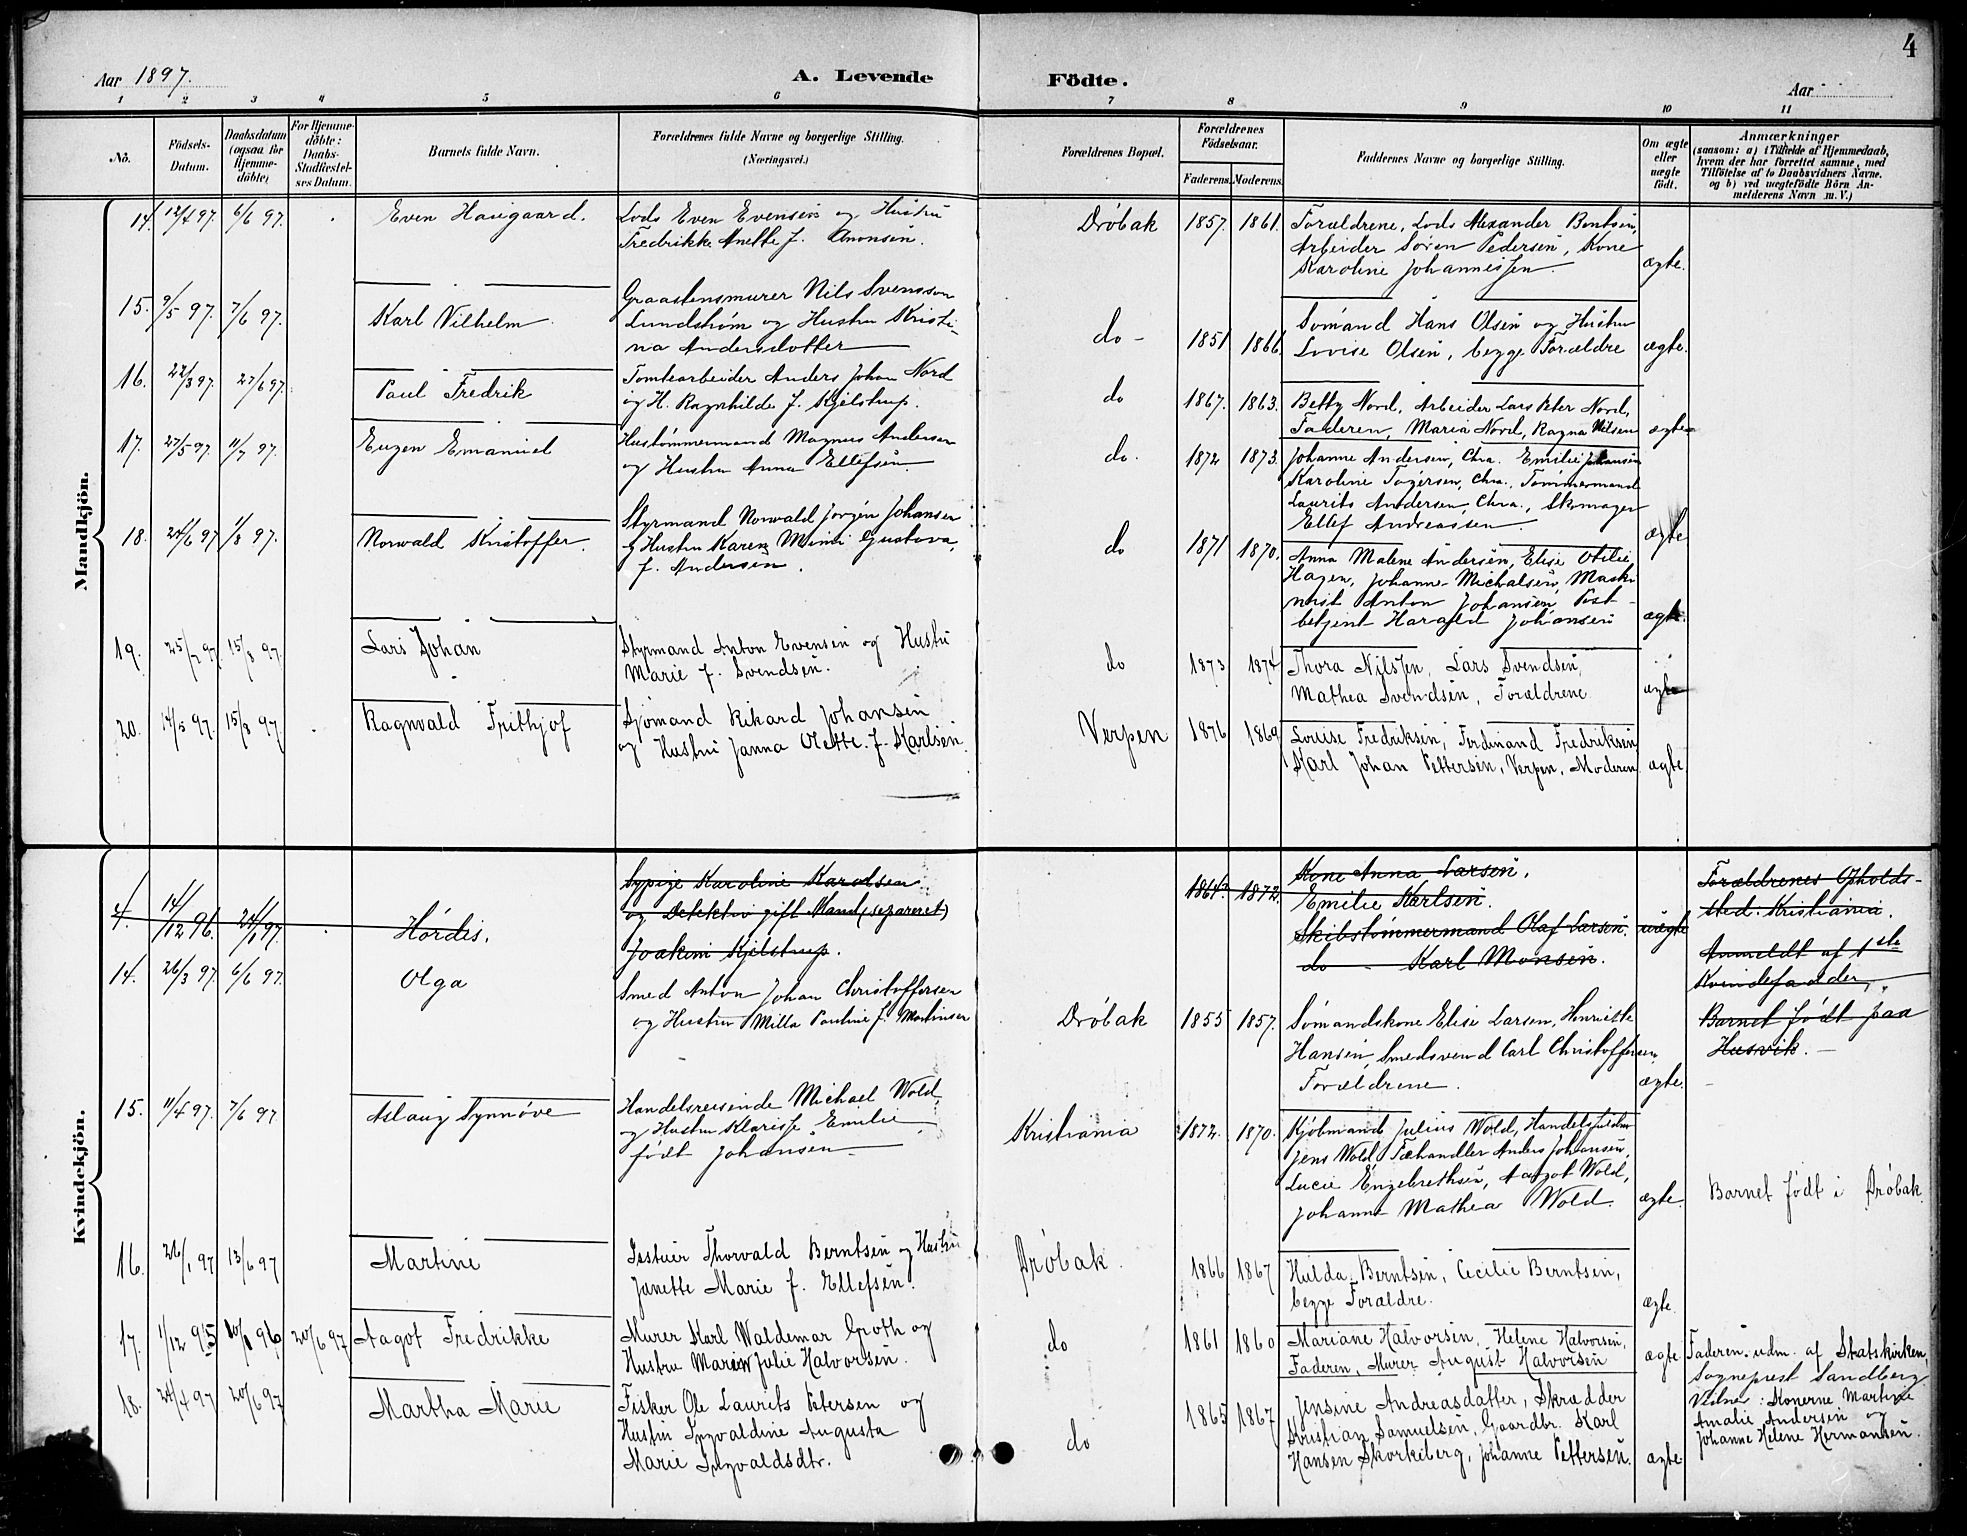 4
Aar 1897.
A. Levende Födte.
Aar
1 2 3 4 5 6 7 8 9 10 11
No.
Födsels-Datum.
Daabsdatum (ogsaa for Hjemme-döbte)
For Hjemme-döbte: Daabs-Stadfæstel-ses Datum.
Barnets fulde Navn.
Forældrenes fulde Navne og borgerlige Stilling. (Næringsvei.)
Forældrenes Bopæl.
Forældrenes Födselsaar.
Faderens. Moderens.
Faddernes Navne og borgerlige Stilling.
Om ægte eller uægte födt.
Anmærkninger
(saasom: a) i Tilfælde af Hjemmedaab,
hvem der har forrettet samme, med
Tilföielse af to Daabsvidners Navne.
og b) ved uægtefödte Börn An-
melderens Navn m. V.)
Mandkjön.
14. 12/4 97. 6/6 97. Even Haugaard.
Lods Even Evensen og Hustru
Fredrikke Anette f. Anonsen.
Dröbak 1857. 1861.
Forældrene, Lods Alexander Bentsen,
Arbeider Sören Pedersen, Kone
Karoline Johannessen
ægte.
15. 9/5 97. 7/6 97. Karl Vilhelm
Graastensmurer Nils Svensson
Lundström og Hustru Kristi-
na Andersdotter
do - 1851 1866.
Sömand Hans Olsen og Hustru
Lovise Olsen, begge Forældre
ægte.
16. 22/3 97. 27/6 97. Paul Fredrik
Tomtearbeider Anders Johan Nord
og H. Ragnhilde f. Kjelstrup.
do 1867. 1863.
Betty Nord, Arbeider Lars Peter Nord,
Faderen, Maria Nord, Ragna Nilsen
ægte
17. 27/5 97. 11/7 97. Eugen Emanuel
Hustömmermand Magnus Andersen
og Hustru Anna Ellefsen
do. 1872 1873.
Johanne Andersen, Chra. Emilie Johansen
Karoline Togersen, Chra., Tömmermand
Laurits Andersen, Chra., Skomager
Ellef Andreassen.
ægte
18. 24/6 97 1/8 97. Norvald Kristoffer.
Styrmand Norvald Jörgen Johansen
og Hustru Karen Mimi Gustava,
f. Andersen.
do 1871 1870.
Anna Malene Andersen, Elise Otilie
Hagen, Johanne Michalsen, Maski-
nist Anton Johansen, Post-
betjent Harald Johansen
ægte.
19. 25/7 97. 15/8 97. Lars Johan
Styrmand Anton Evensen og Hustru
Marie f. Svendsen.
do 1873 1874
Thora Nilssen, Lars Svendsen,
Mathea Svendsen, Forældrene
ægte
20. 14/5 97. 15/8 97. Ragnvald Frithjof
Sjömand Rikard Johansen
og Hustru Janna Olette f. Karlsen.
Verpen 1876 1869
Louise Fredriksen, Ferdinand Fredriksen,
Karl Johan Pettersen, Verpen, Moderen.
ægte.
Kvindekjön.
4. 14/12 96. 24/1 97. Hördis.
Sypige Karoline Karolsen
og Detektiv gift Mand (separeret)
Joakim Kjelstrup.
1864. 1872.
Kone Anna Larsen,
Emilie Karlsen.
Skibstömmermand Olaf Larsen.
do - Karl Monsen.
uægte
Forældrenes Opholds-
sted: Kristiania.
Anmeldt af 1ste
Kvindefadder,
Barnet födt paa
Husvik.
14. 26/3 97 6/6 97. Olga
Smed Anton Johan Christoffersen
og Hustru Milla Pauline f. Martinsen
Dröbak 1855 1857.
Sömandskone Elise Larsen, Henriette
Hansen, Smedsvend Carl Christoffersen,
Forældrene.
ægte.
15. 11/4 97. 7/6 97 Aslaug Synnöve
Handelsreisende Michael Wold,
og Hustru Klarisse Emilie
födt Johansen
Kristiania 1872. 1870.
Kjöbmand Julius Wold, Handelsfuldm.
Jens Wold, Fæhandler Anders Johansen,
Lucie Engebrethsen, Aagot Wold,
Johanne Mathea Wold.
ægte
Barnet födt i Dröbak.
16. 26/1 97 13/6 97 Martine
Thorvald Berntsen og Hustru
Janette Marie f. Ellefsen.
Dröbak. 1866 1867
Hulda Berntsen, Cecilie Berntsen,
begge Forældre.
ægte.
17. 1/12 95 96 20/6 97 Aagot Fredrikke
Murer Karl Waldemar Groth og
Hustru Maren Julie Halvorsen.
do 1861 1860
Mariane Halvorsen, Helene Halvorsen,
Faderen, Murer August Halvorsen
ægte
Faderen udm. af Statskirken,
Sogneprest Sandberg
Vidner: Konerne Martine
Amalie Andersen og
Johanne Helene Hermansen.
18. 24/4 97 20/6 97 Martha Marie
Fisker Ole Laurits Petersen og
Hustru Ingvaldine Augusta
Marie Ingvaldsdtr.
do 1865 1867
Jensine Andreasdatter, Skrædder
Kristian Samuelsen, Gaardbr. Karl
Hansen Skorkeberg, Johanne Pettersen.
ægte